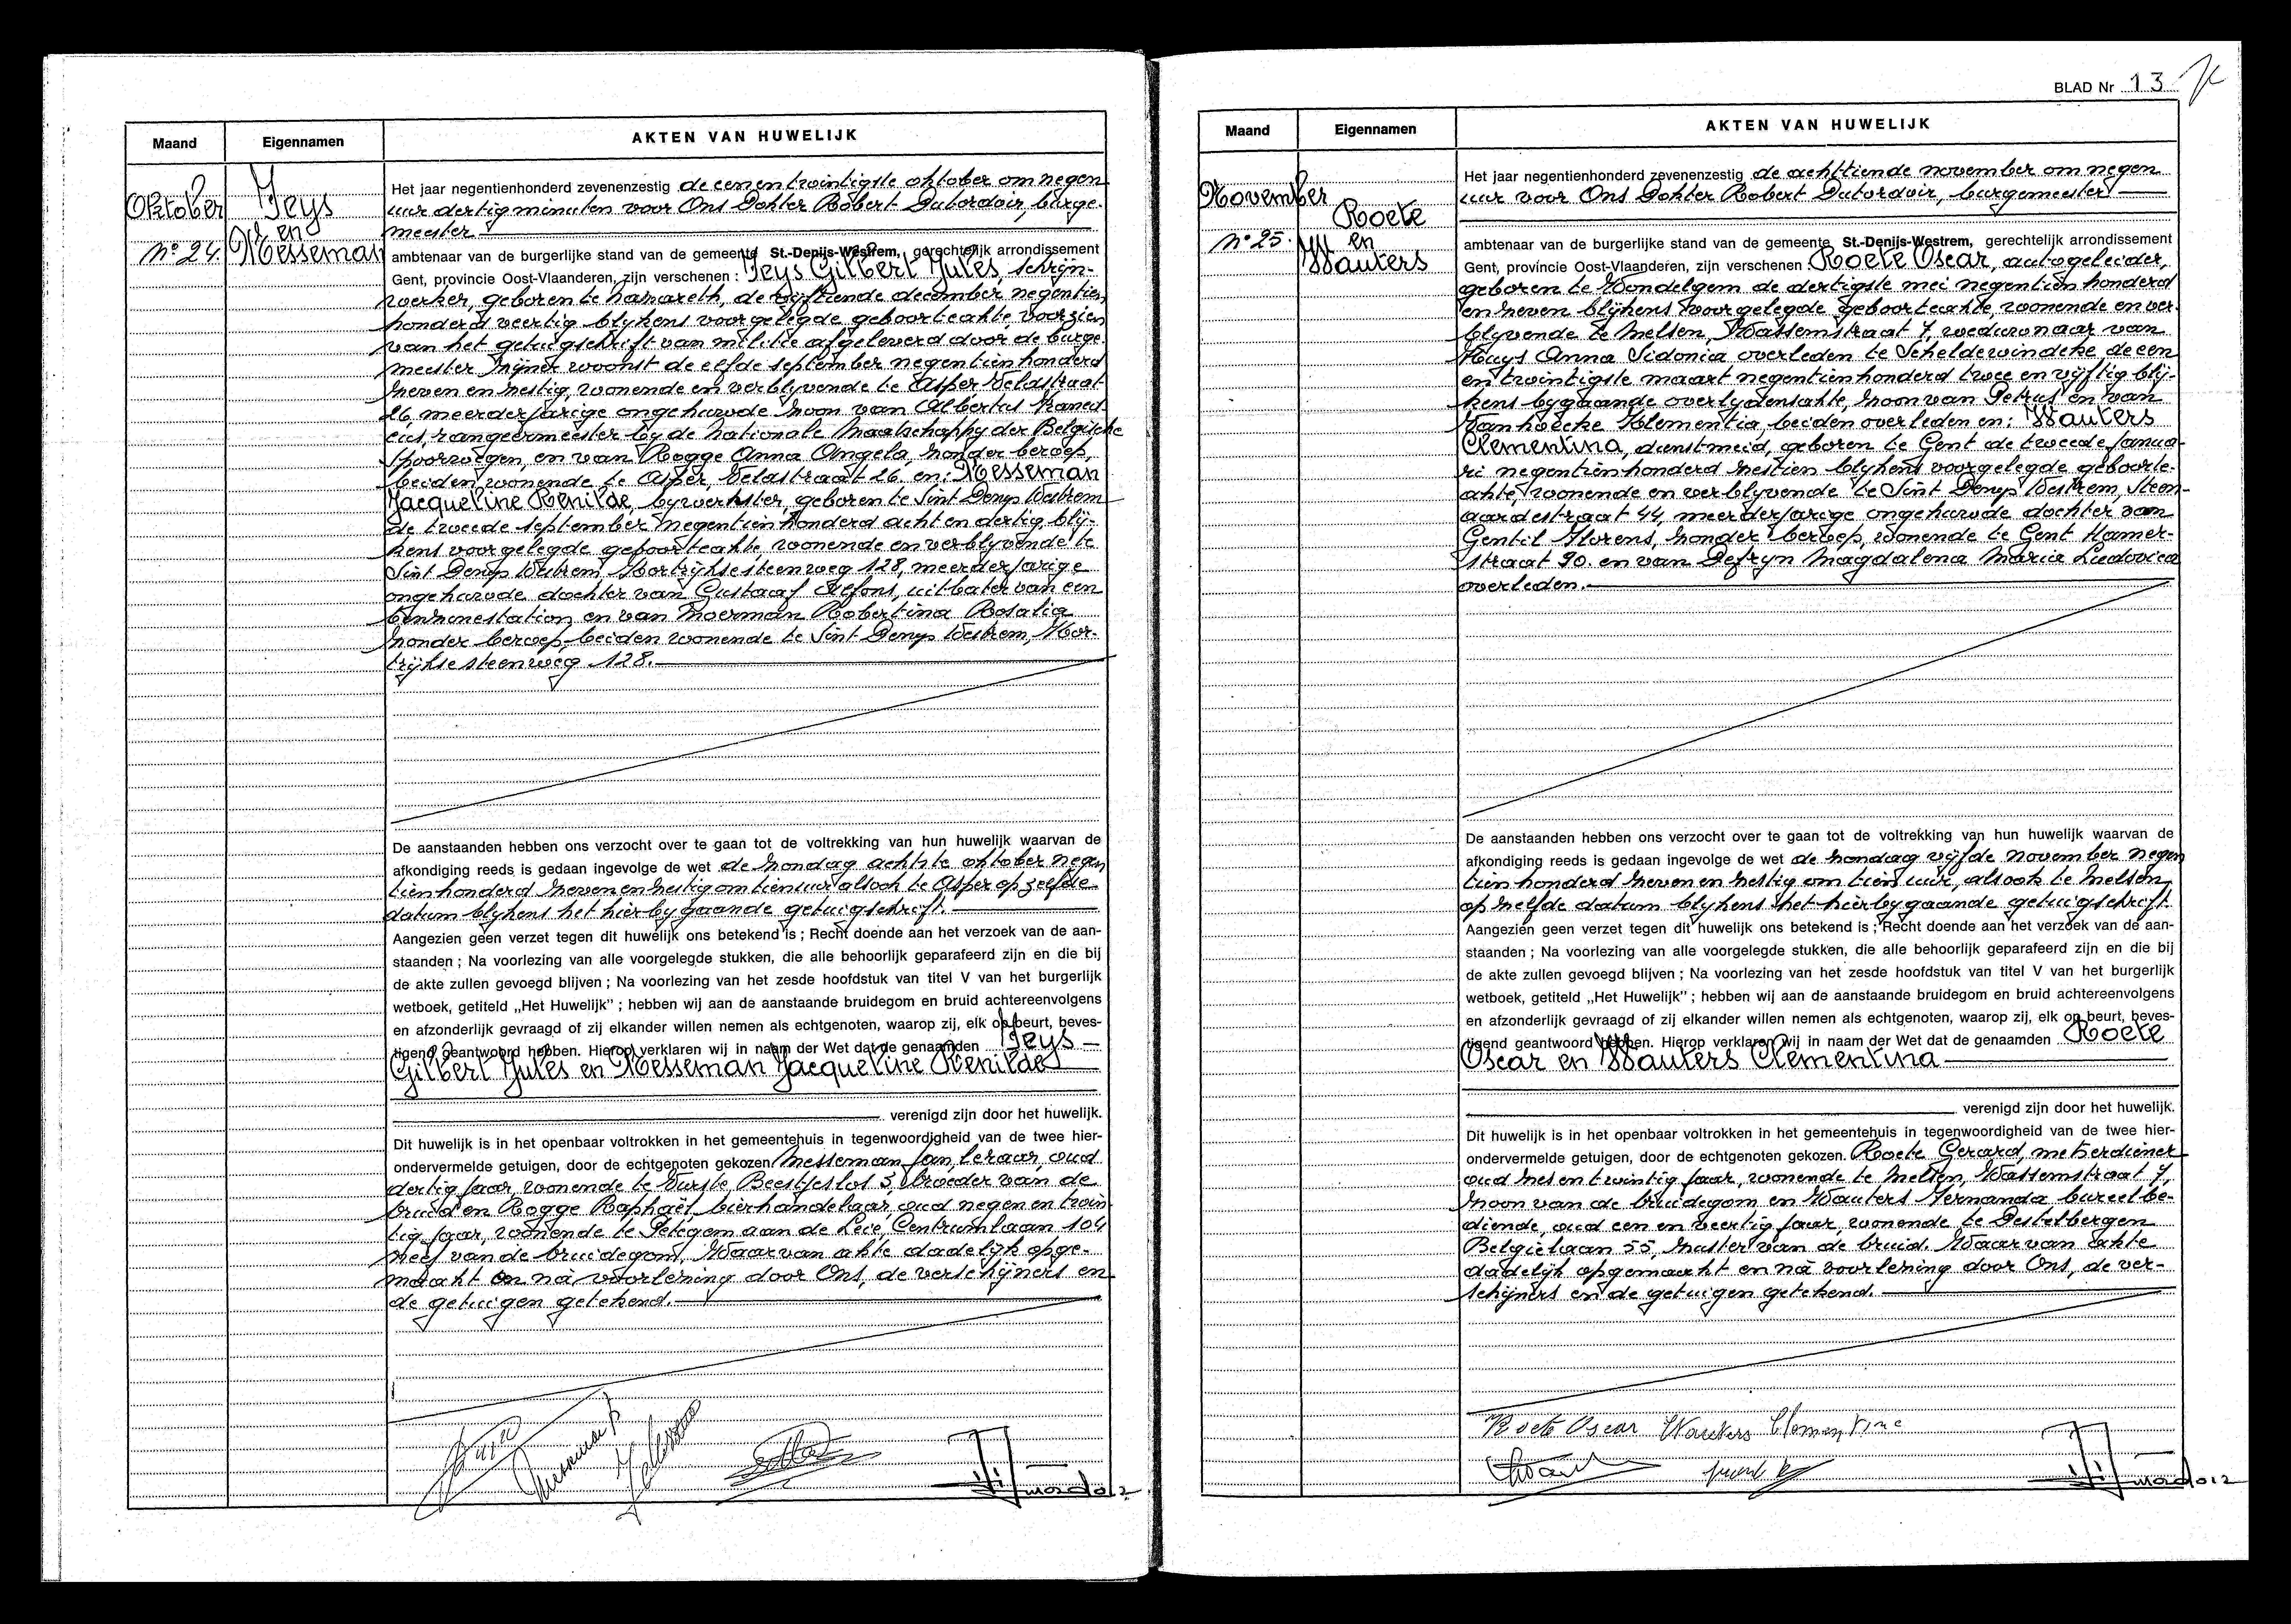 Maand
Eigennamen
AKTEN VAN HUWELIJK
Oktober
N° 24.
Jeys
en
Messeman
Het jaar negentienhonderd zevenenzestig de eenentwintigste oktober om negen
uur dertig minuten voor Ons Dokter Robert Dutordoir, burge-
meester
ambtenaar van de burgerlijke stand van de gemeente St.-Denijs-Westrem, gerechtelijk arrondissement
Gent, provincie Oost-Vlaanderen, zijn verschenen : Jeys Gilbert Jules, schrijn-
werker, geboren te Nazareth, de vijftiende december negentien
honderd veertig blijkens voorgelegde geboorteakte, voorzien
van het getuigschrift van militie afgeleverd door de burge
meester zijner woonst de elfde september negentien honderd
zeven en zestig, wonende en verblyvende te Asper, Velastraat
26, meerderjarige ongehuwde zoon van Albertus Francis
cus, rangeermeester by de Nationale Maatschappy der Belgische
spoorwegen, en van Rogge Anna Angela, zonder beroep,
beiden wonende te Asper, Velastraat 26, en: Messeman
Jacqueline Renilde, bywerkster, geboren te Sint Denys Westrem
de tweede september negentienhonderd acht en dertig blij-
kens voorgelegde geboorteakte, wonende en verblyvende te
Sint Denys Westrem, Kortrijksesteenweg 128, meerderjarige
ongehuwde dochter van Gustaaf Alfons, uitbater van een
benzinestation en van Moerman Robertina Rosalia
zonder beroep, beiden wonende te Sint Denys Westrem, Kor-
trijksesteenweg 128.
De aanstaanden hebben ons verzocht over te gaan tot de voltrekking van hun huwelijk waarvan de
afkondiging reeds is gedaan ingevolge de wet de zondag achtste oktober negen
tienhonderd zeven en zestig om tien uur alsook te Asper op zelfde
datum blykens het hierbygaande getuigschrift.
Aangezien geen verzet tegen dit huwelijk ons betekend is ; Recht doende aan het verzoek van de aan-
staanden ; Na voorlezing van alle voorgelegde stukken, die alle behoorlijk geparafeerd zijn en die bij
de akte zullen gevoegd blijven ; Na voorlezing van het zesde hoofdstuk van titel V van het burgerlijk
wetboek, getiteld „Het Huwelijk" ; hebben wij aan de aanstaande bruidegom en bruid achtereenvolgens
en afzonderlijk gevraagd of zij elkander willen nemen als echtgenoten, waarop zij, elk op beurt, beves-
tigend geantwoord hebben. Hierop verklaren wij in naam der Wet dat de genaamden Jeys
Gilbert Jules en Messeman Jacqueline Renilde
verenigd zijn door het huwelijk.
Dit huwelijk is in het openbaar voltrokken in het gemeentehuis in tegenwoordigheid van de twee hier-
ondervermelde getuigen, door de echtgenoten gekozen Messeman Jan, leraar, oud
dertig jaar, wonende te Vurste, Beestjeslos 3, broeder van de
bruid en Rogge Raphaël, bierhandelaar, oud negen en twin
tig jaar, wonende te Petegem aan de Leie, Centrumlaan 104
neef van de bruidegom. Waarvan akte dadelijk opge-
maakt en nà voorlezing door Ons, de verschijners en
de getuigen getekend.
BLAD Nr 13
Maand
Eigennamen
AKTEN VAN HUWELIJK
November
N° 25.
Roete
en
Wauters
Het jaar negentienhonderd zevenenzestig de achttiende november om negen
uur voor Ons Dokter Robert Dutordoir, burgemeester
ambtenaar van de burgerlijke stand van de gemeente St.-Denijs-Westrem, gerechtelijk arrondissement
Gent, provincie Oost-Vlaanderen, zijn verschenen : Roete Oscar, autogeleider,
geboren te Wondelgem de dertigste mei negentien honderd
en zeven blijkens voorgelegde geboorteakte, wonende en ver
blyvende te Melsen, Wassemstraat 7, weduwnaar van
Huys Anna Sidonia overleden te Scheldewindeke, de een
en twintigste maart negentienhonderd twee en vijftig blij-
kens bygaande overlydensakte, zoon van Petrus en van
Vanhoecke Klementia, beiden overleden en: Wauters
Clementina, dienstmeid, geboren te Gent de tweede janua-
ri negentienhonderd zestien blykens voorgelegde geboorte-
akte, wonende en verblyvende te Sint Denys Westrem, Steen-
aardestraat 44, meerderjarige ongehuwde dochter van
Gentil Florens, zonder beroep, wonende te Gent Hamer-
straat 90. en van Defryn Magdalena Maria Ludovica
overleden.
De aanstaanden hebben ons verzocht over te gaan tot de voltrekking van hun huwelijk waarvan de
afkondiging reeds is gedaan ingevolge de wet de zondag vijfde november negen
tien honderd zeven en zestig om tien uur, alsook te Melsen
op zelfde datum blykens het hierbygaande getuigschrift.
Aangezien geen verzet tegen dit huwelijk ons betekend is ; Recht doende aan het verzoek van de aan-
staanden ; Na voorlezing van alle voorgelegde stukken, die alle behoorlijk geparafeerd zijn en die bij
de akte zullen gevoegd blijven ; Na voorlezing van het zesde hoofdstuk van titel V van het burgerlijk
wetboek, getiteld „Het Huwelijk" ; hebben wij aan de aanstaande bruidegom en bruid achtereenvolgens
en afzonderlijk gevraagd of zij elkander willen nemen als echtgenoten, waarop zij, elk op beurt, beves-
tigend geantwoord hebben. Hierop verklaren wij in naam der Wet dat de genaamden Roete
Oscar en Wauters Clementina
verenigd zijn door het huwelijk.
Dit huwelijk is in het openbaar voltrokken in het gemeentehuis in tegenwoordigheid van de twee hier-
ondervermelde getuigen, door de echtgenoten gekozen. Roete Gerard, metserdiener
oud zes en twintig jaar, wonende te Melsen, Wassemstraat 7,
zoon van de bruidegom en Wauters Fernanda bureelbe-
diende, oud een en veertig jaar, wonende te Destelbergen
Belgiëlaan 55, zuster van de bruid. Waarvan akte
dadelijk opgemaakt en nà voorlezing door Ons, de ver-
schijners en de getuigen getekend.
Roete Oscar Wauters Clementine